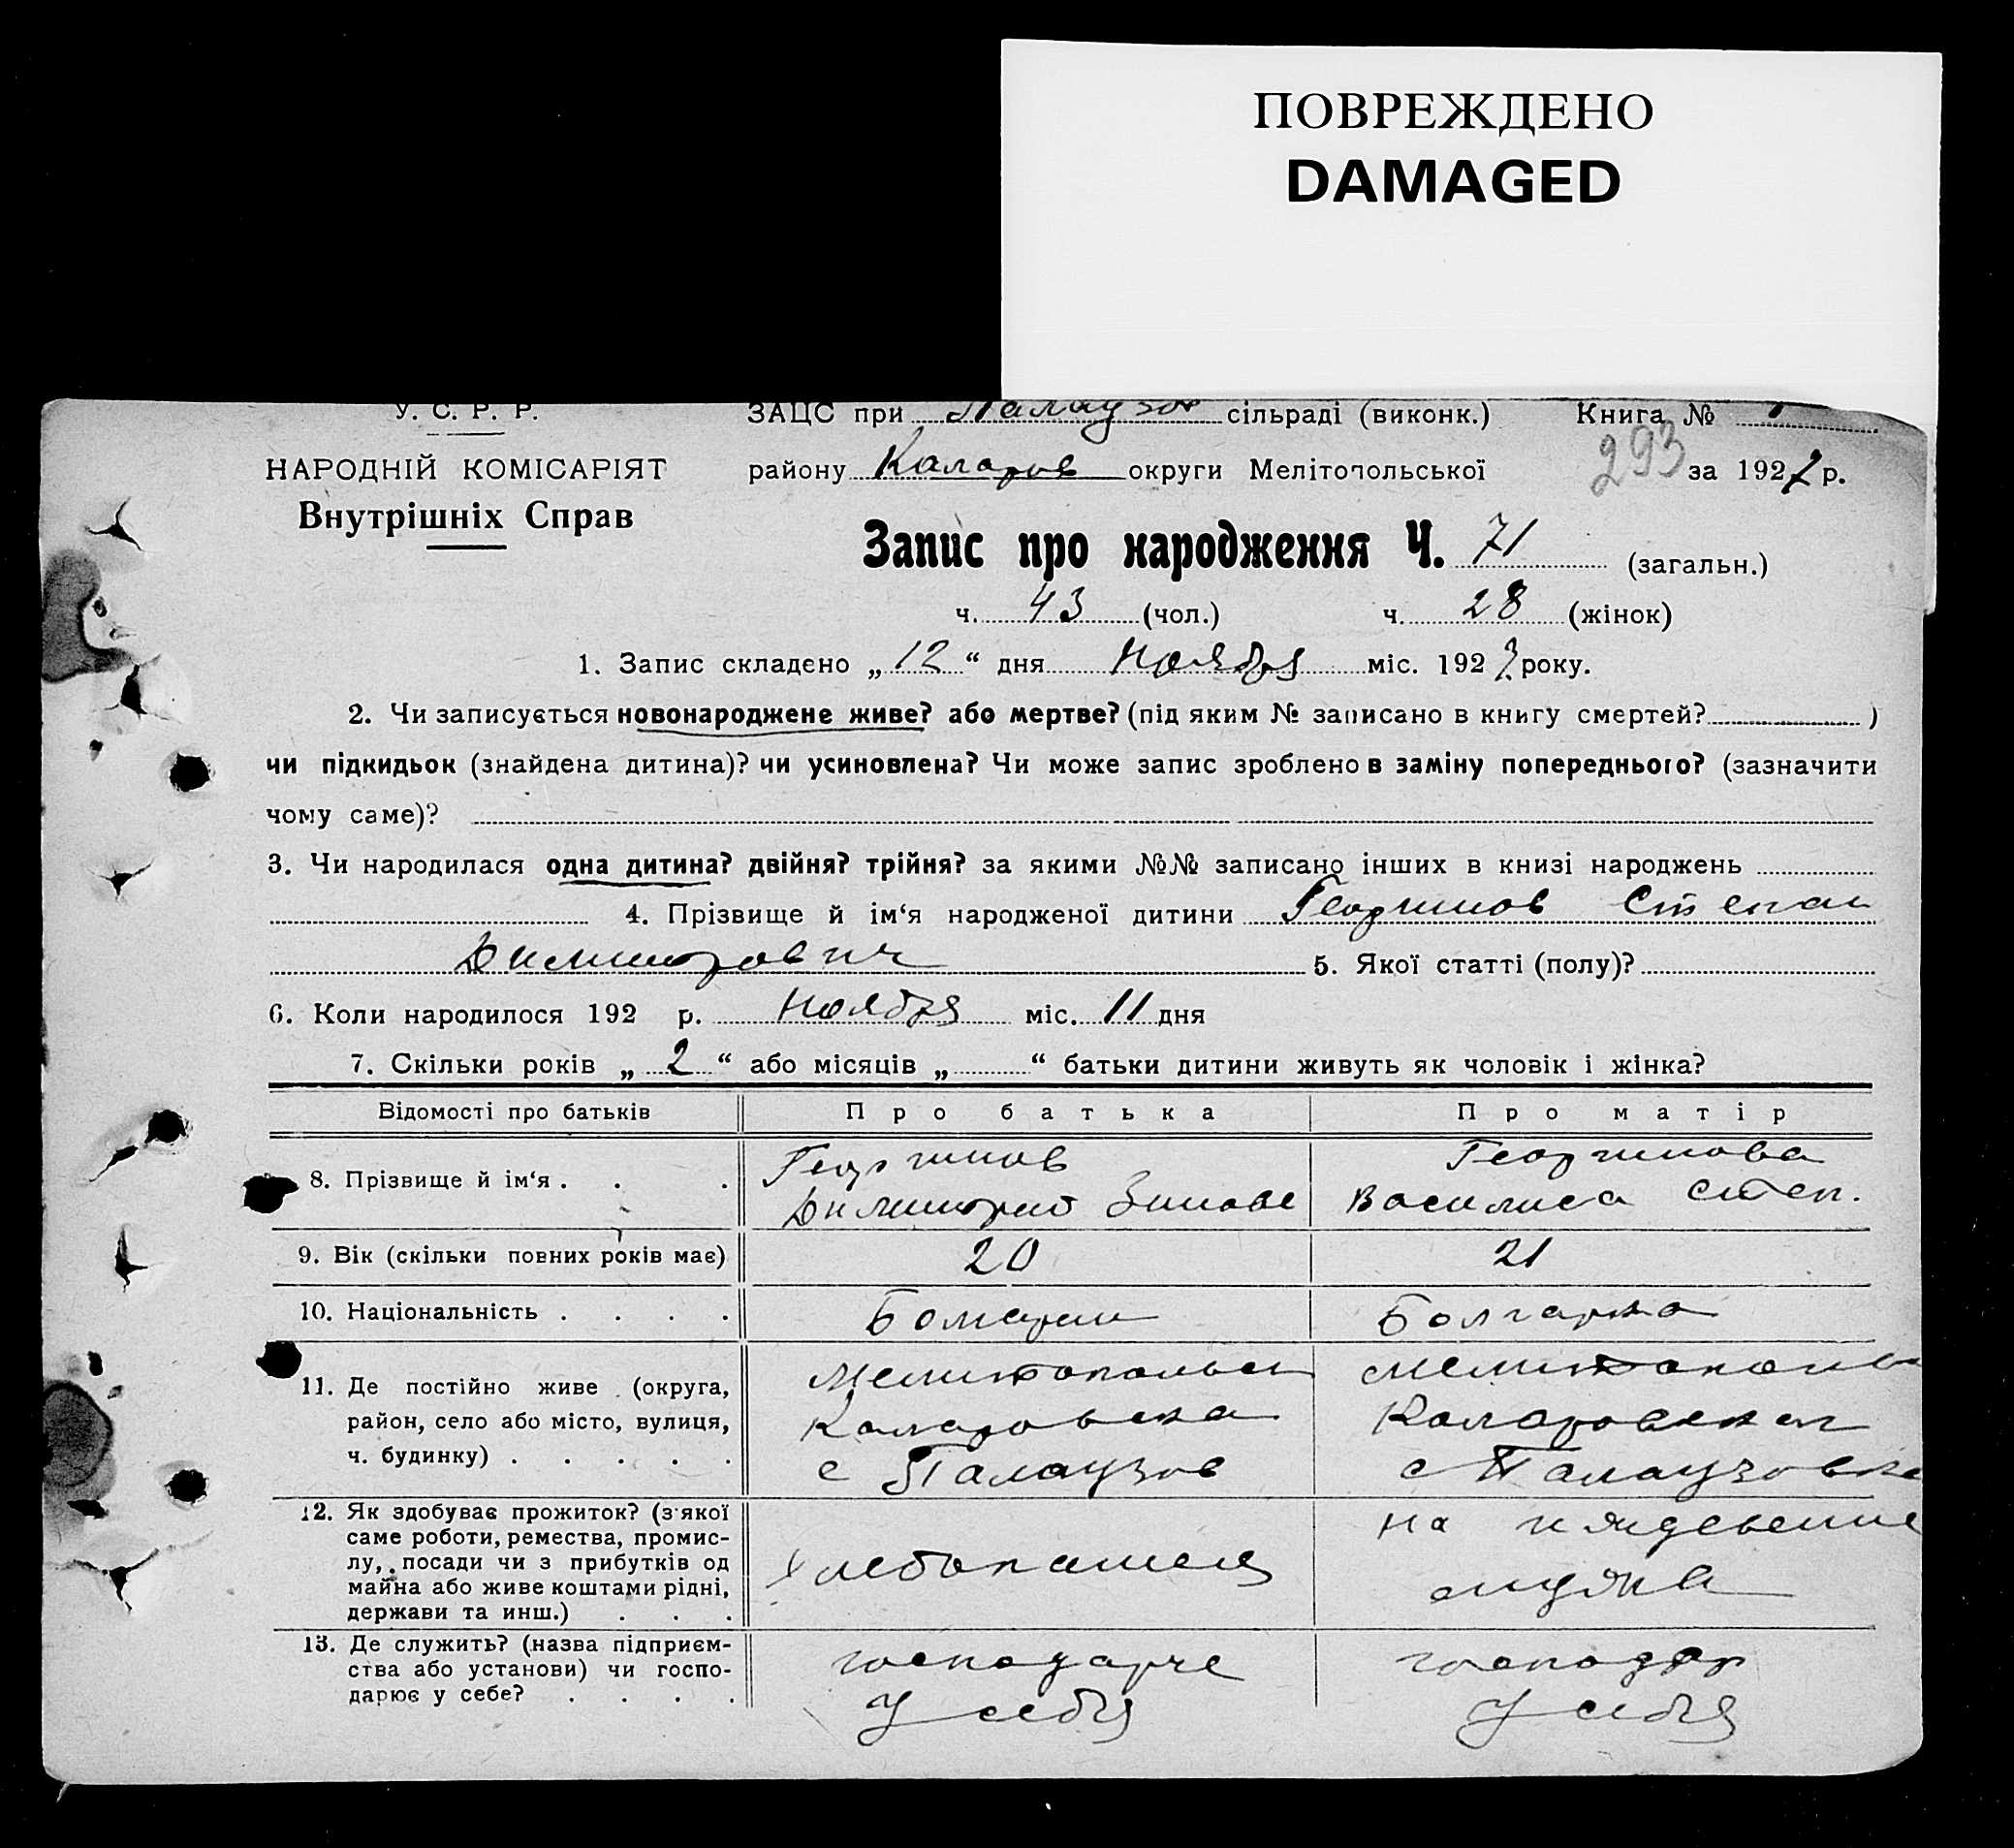 ПОВРЕЖДЕНО
DAMAGED
У. С. Р. Р.
ЗАЦС при Палаузов сільраді (виконк.) Книга №
НАРОДНІЙ КОМІСАРІЯТ
району Коларов округи Мелітопольської 293 за 1927 р.
Внутрішніх Справ
Запис про народження Ч. 71 (загальн.)
ч. 43 (чол.) ч. 28 (жінок)
1. Запис складено „ 12 “ дня Ноября міс. 1927 року.
2. Чи записується новонароджене живе? або мертве? (під яким № записано в книгу смертей? )
чи підкидьок (знайдена дитина)? чи усиновлена? Чи може запис зроблено в заміну попереднього? (зазначити
чому саме)?
3. Чи народилася одна дитина? двійня? трійня? за якими №№ записано інших в книзі народжень
4. Прізвище й ім‘я народженої дитини Георгинов Степан
Димитрович 5. Якої статті (полу)?
6. Коли народилося 192 р. Ноября міс. 11 дня
7. Скільки років „ 2 “ або місяців „ “ батьки дитини живуть як чоловік і жінка?
Відомості про батьків
Про батька
Про матір
8. Прізвище й ім‘я . . .
Георгинов
Димитрий
Георгинова
Василиса Степ.
9. Вік (скільки повних років має)
20
21
10. Національність . . . .
Болгарин
Болгарка
11. Де постійно живе (округа,
район, село або місто, вулиця,
ч. будинку) . . . . .
Мелитопольск
Коларовска
с Палаузов
Мелитополь
Коларовская
с Палаузовка
12. Як здобуває прожиток? (з якої
саме роботи, ремества, промис-
лу, посади чи з прибутків од
майна або живе коштами рідні,
держави та инш.) . . .
хлебопашец
на иждевение
мужа
13. Де служить? (назва підприєм-
ства або установи) чи госпо-
дарює у себе? . . . .
господарче
У себя
господар
У себя